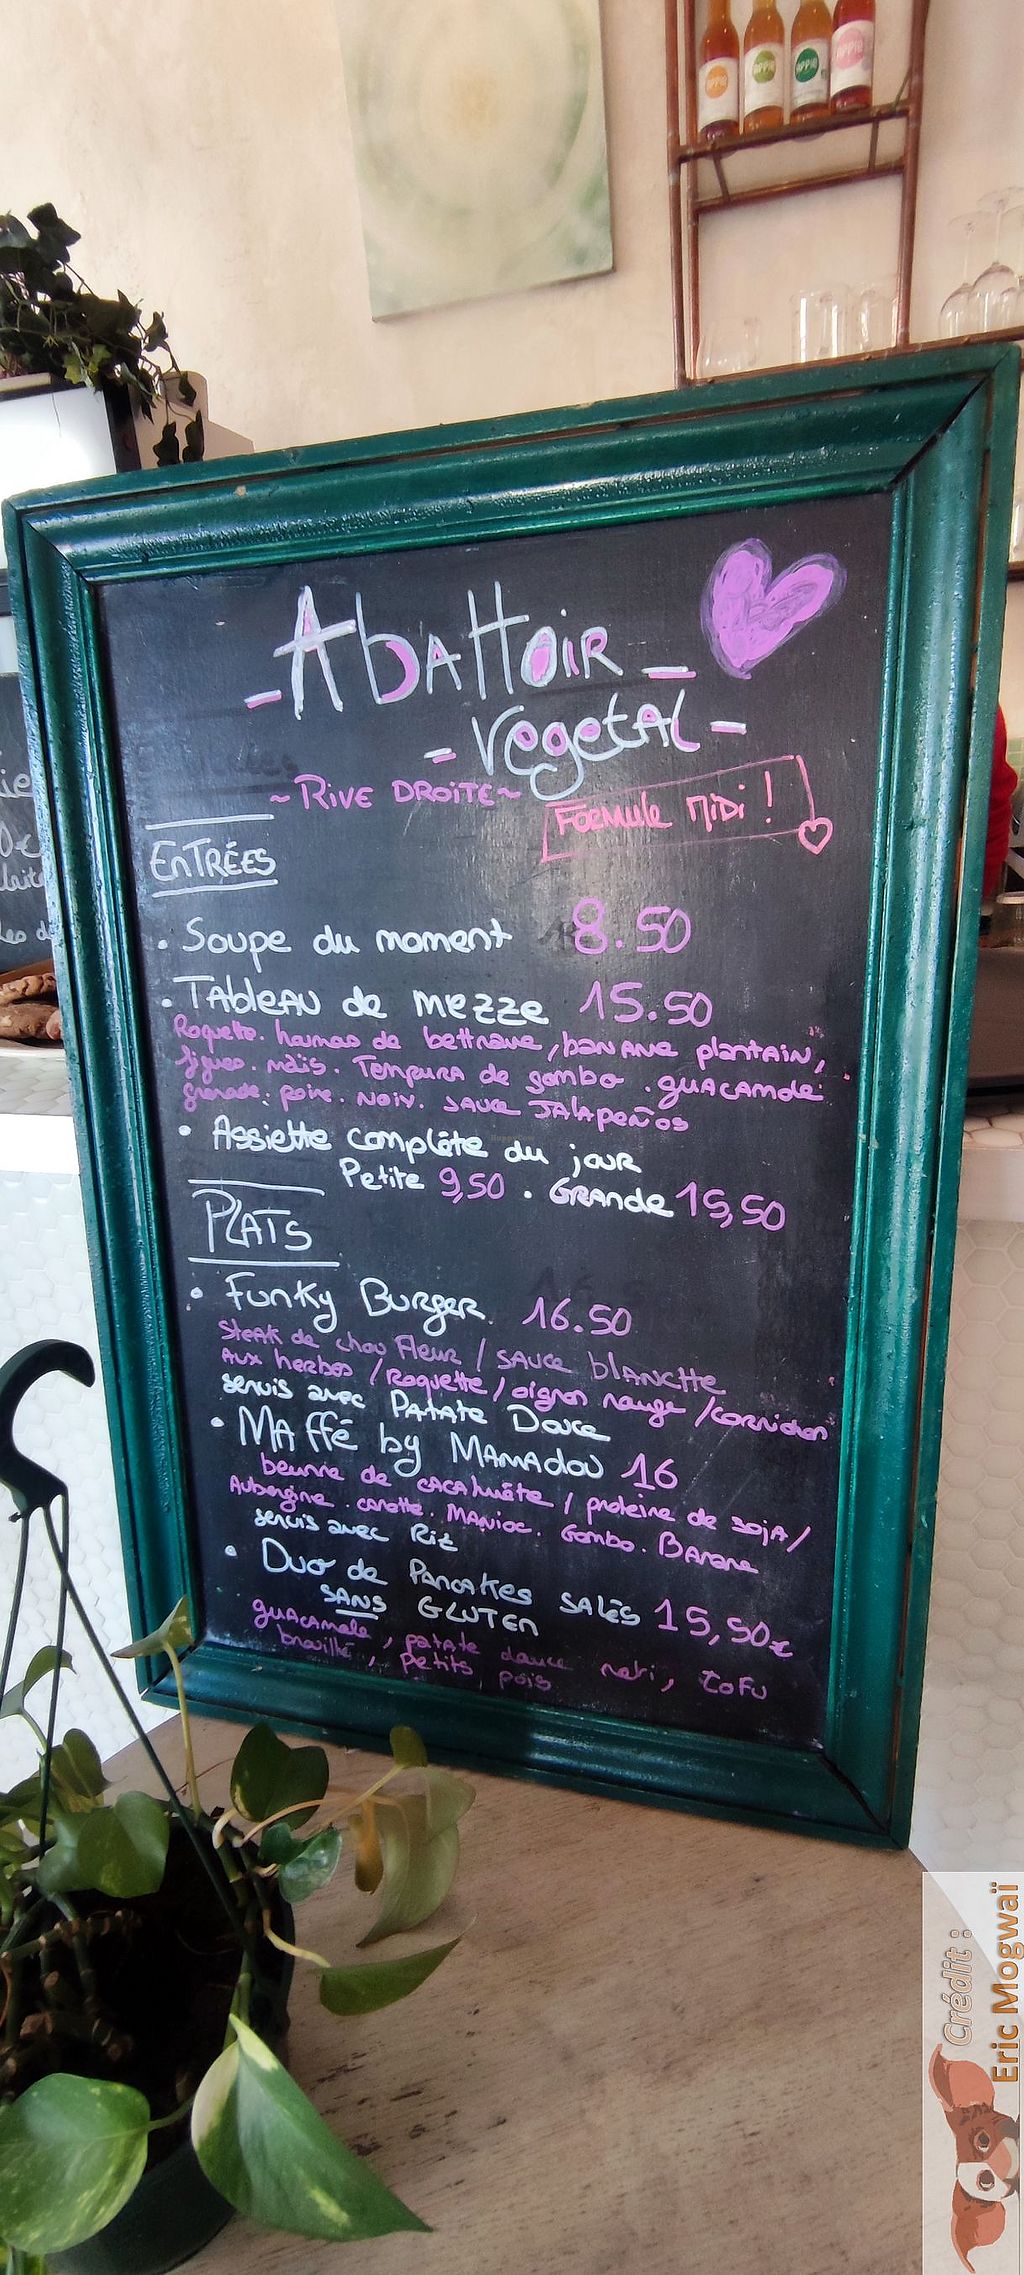 APPIE APPIE APPIE APPIE
- AbaTToiR -
- Vegetal -
~ RIVE DROITE ~
FORMULE MIDI !
ENTRÉES
• Soupe du moment 8.50
• TAbleau de mezze 15.50
Roquette. houmos de bettrave, banane plantain,
figues. maïs. Tempura de gombo. guacamole.
grenade. poire. noix. sauce JALApeños
• Assiette complète du jour
Petite 9,50 . GRANDE 15,50
PLATS
• Funky Burger 16.50
Steak de chou Fleur / sauce blanche
aux herbes / Roquette / oignon rouge / cornichon
servis avec Patate Douce
• MAffé by MAMAdou 16
beurre de cacahuète / protéine de soja /
Aubergine. carotte. Manioc. Gombo. Banane
servis avec Riz
• Duo de Pancakes salés 15,50€
SANS GLUTEN
guacamole, patate douce roti, Tofu
brouillé, petits pois
Crédit :
Eric Mogwaï